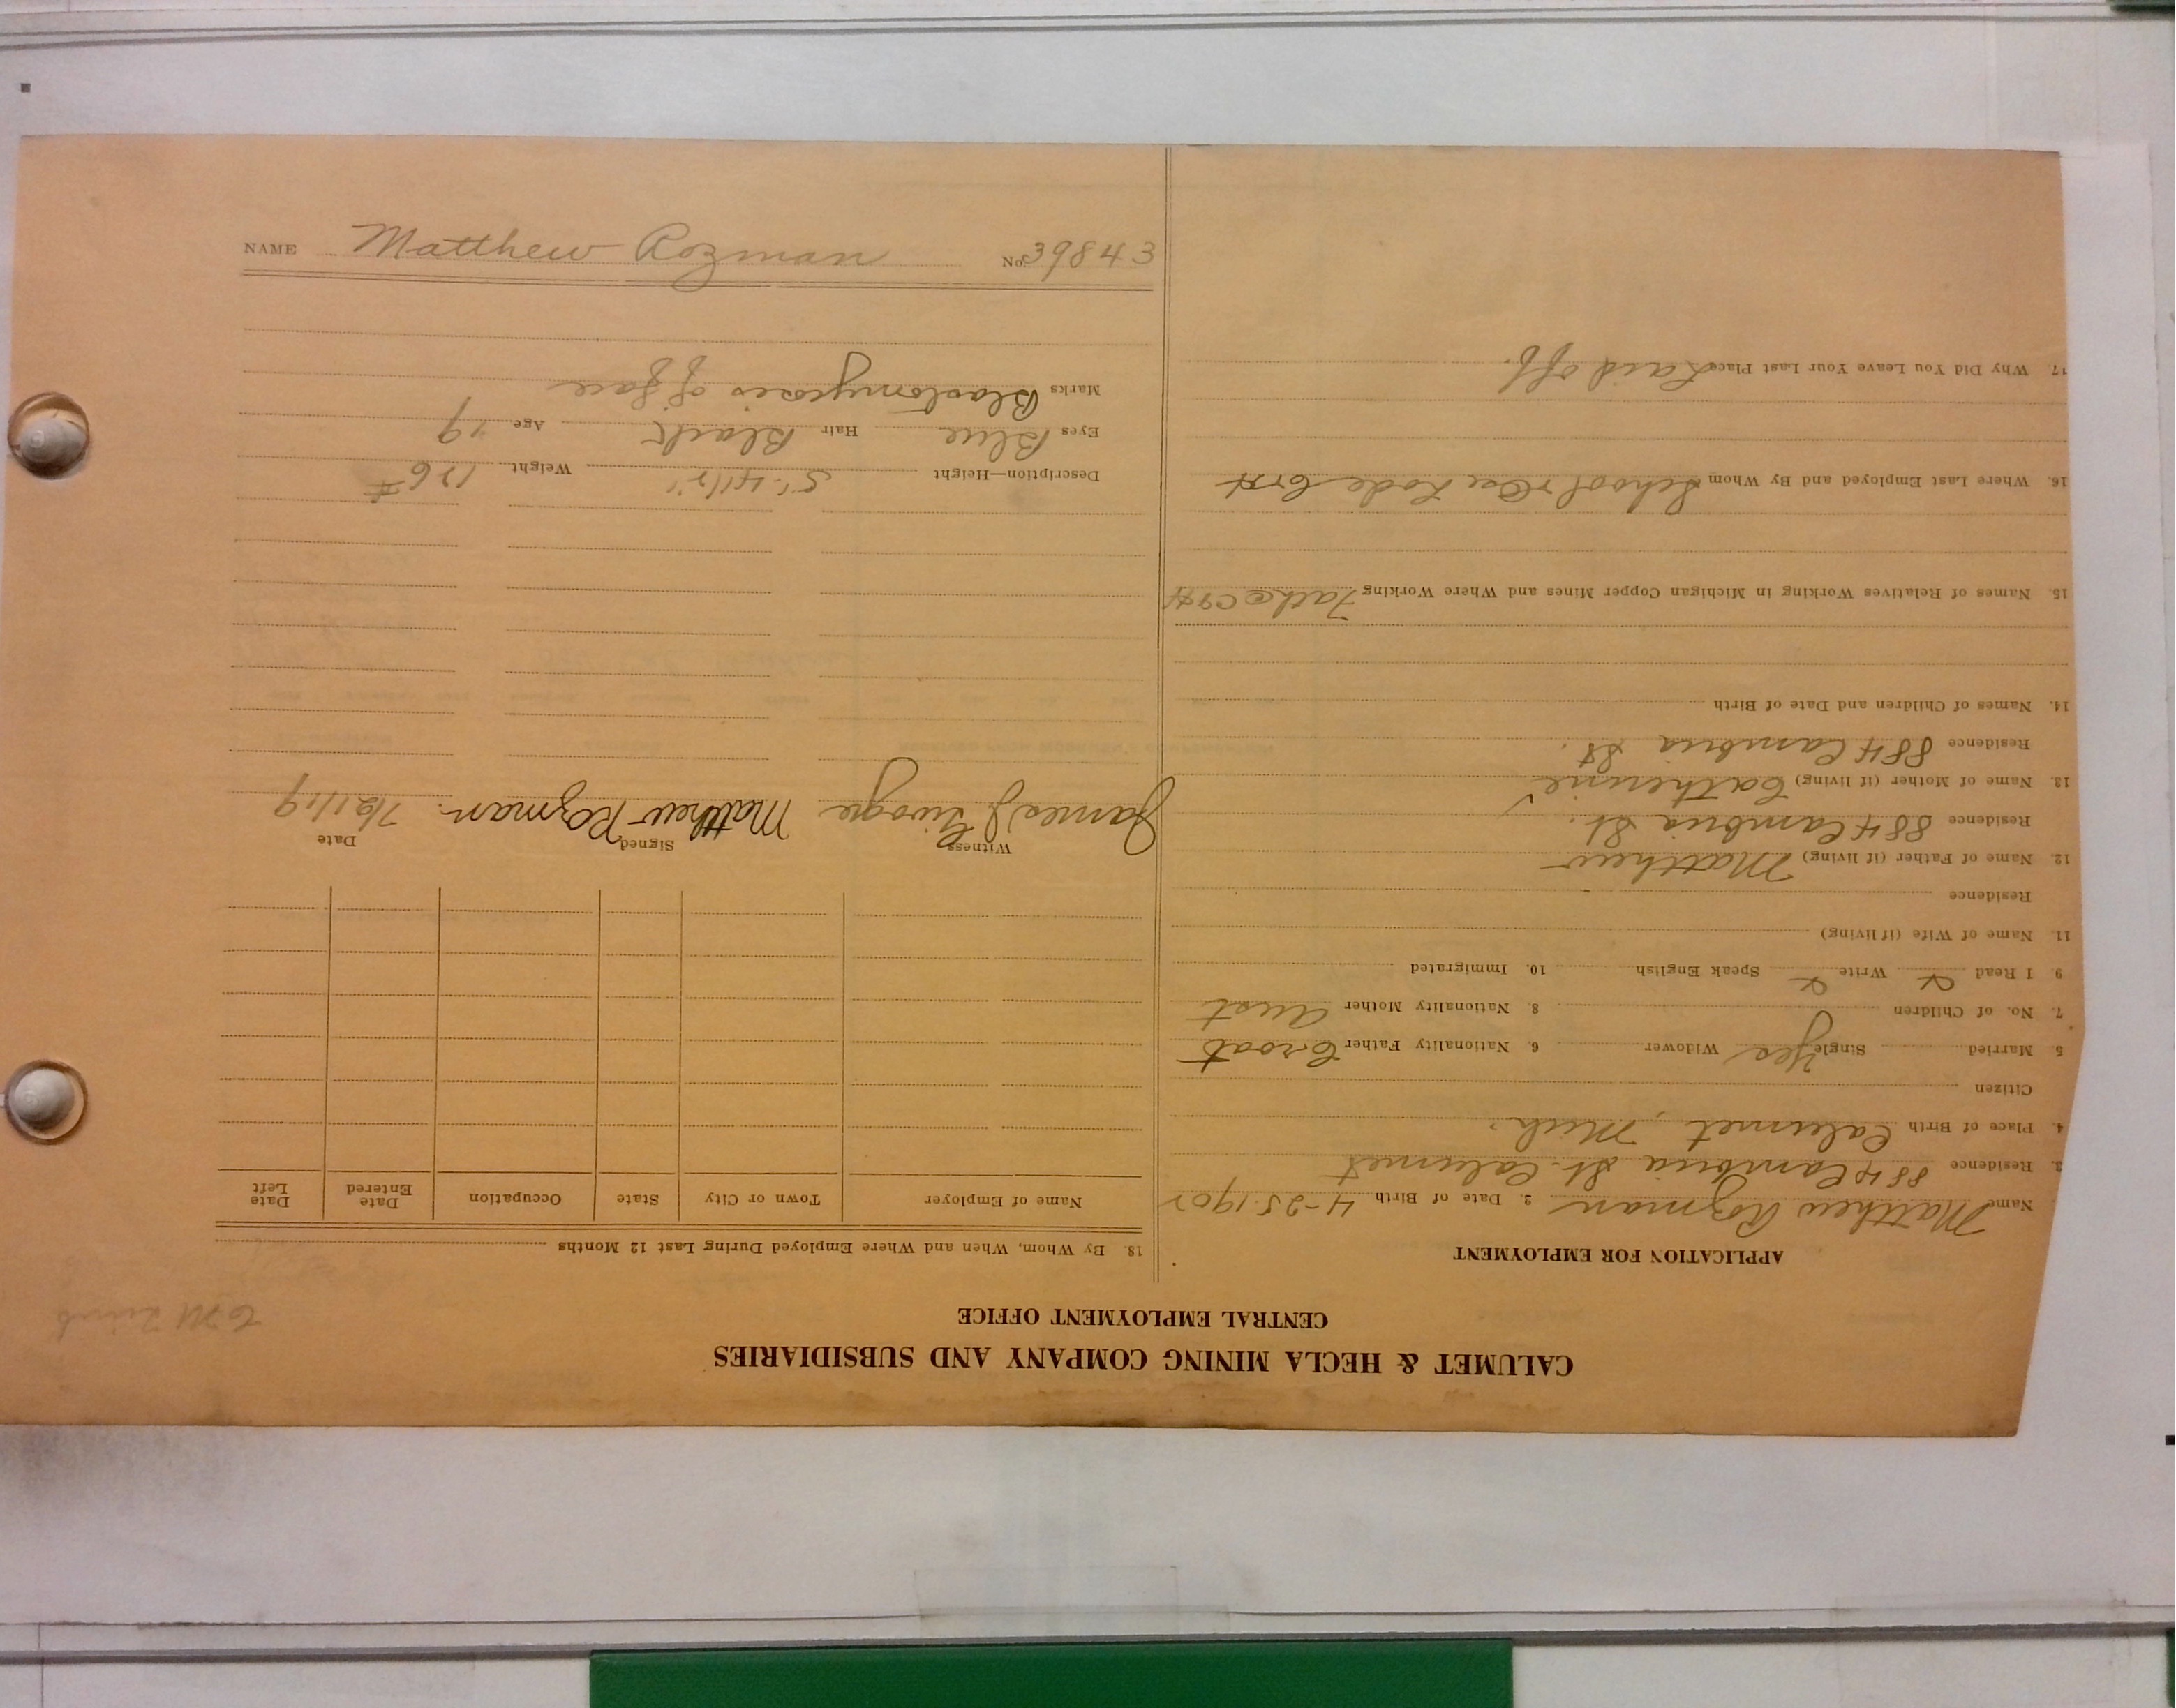 NAME Matthew Rozman No. 39843
CALUMET & HECLA MINING COMPANY AND SUBSIDIARIES
CENTRAL EMPLOYMENT OFFICE
APPLICATION FOR EMPLOYMENT
Name Matthew Rozman 2. Date of Birth 4-25-190
3. Residence 884 Cambria St. Calumet
4. Place of Birth Calumet, Mich.
Citizen
5. Married Single Yes Widower 6. Nationality Father Croat
7. No. of Children 8. Nationality Mother Aust
9. I Read X Write X Speak English 10. Immigrated
11. Name of Wife (if living)
Residence
12. Name of Father (if living) Matthew
Residence 884 Cambria St.
13. Name of Mother (if living) Catherine
Residence 884 Cambria St.
14. Names of Children and Date of Birth
15. Names of Relatives Working in Michigan Copper Mines and Where Working Fath @ C&H
16. Where Last Employed and By Whom School & Lode C&H
17. Why Did You Leave Your Last Place Laid off.
18. By Whom, When and Where Employed During Last 12 Months
Name of Employer Town or City State Occupation Date Entered Date Left
Witness Signed Date
James J Matthew Rozman. 7/21/19
Description—Height 5'. 4 1/2" Weight 126#
Eyes Blue Hair Black Age 17
Marks Blastomycosis of face